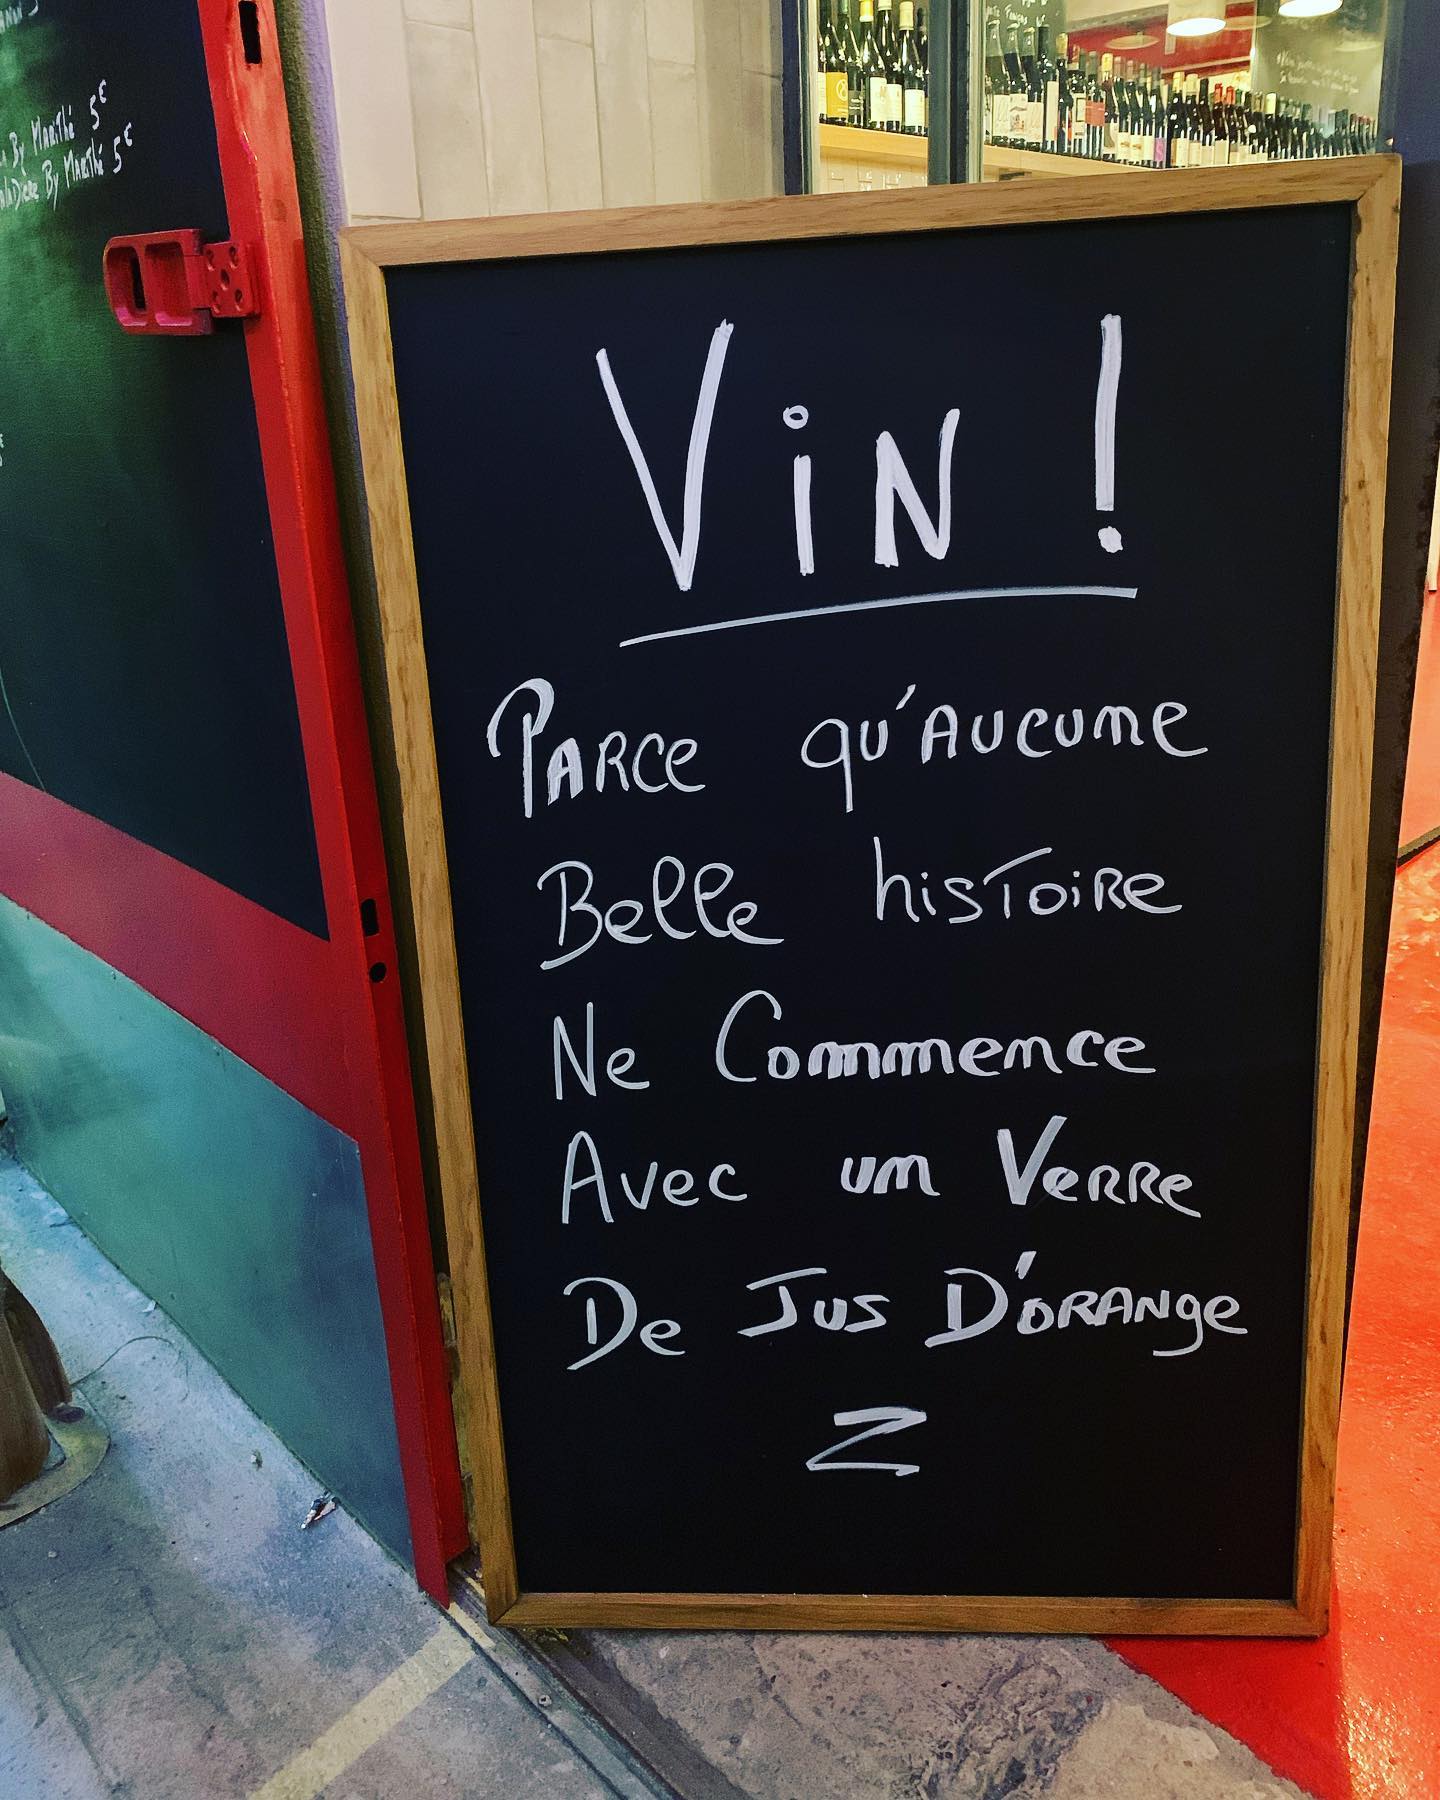 By Marithé 5€
By Marithé 5€
Vin !
Parce qu'aucune
Belle histoire
Ne Commence
Avec un Verre
De Jus D'orange
Z